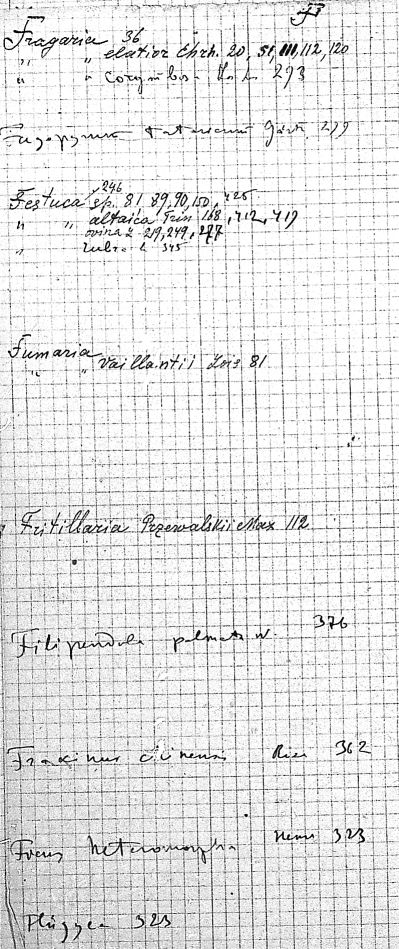 F
Fragaria 36
" " elatior Ehrh. 20, 51, 111, 112, 120
" " corymbosa 293
tataricum Gärtn. 299
Festuca sp. 246 81, 89, 90, 150, 425
" " altaica Trin 168, 412, 419
ovina L 219, 249, 277
" rubra L 345
Fumaria
" " Vaillantii Lois 81
Fritillaria Przewalskii Max 112
Filipendula palmata 376
Fraxinus chinensis 362
heteromorpha 323
Flüggea 323